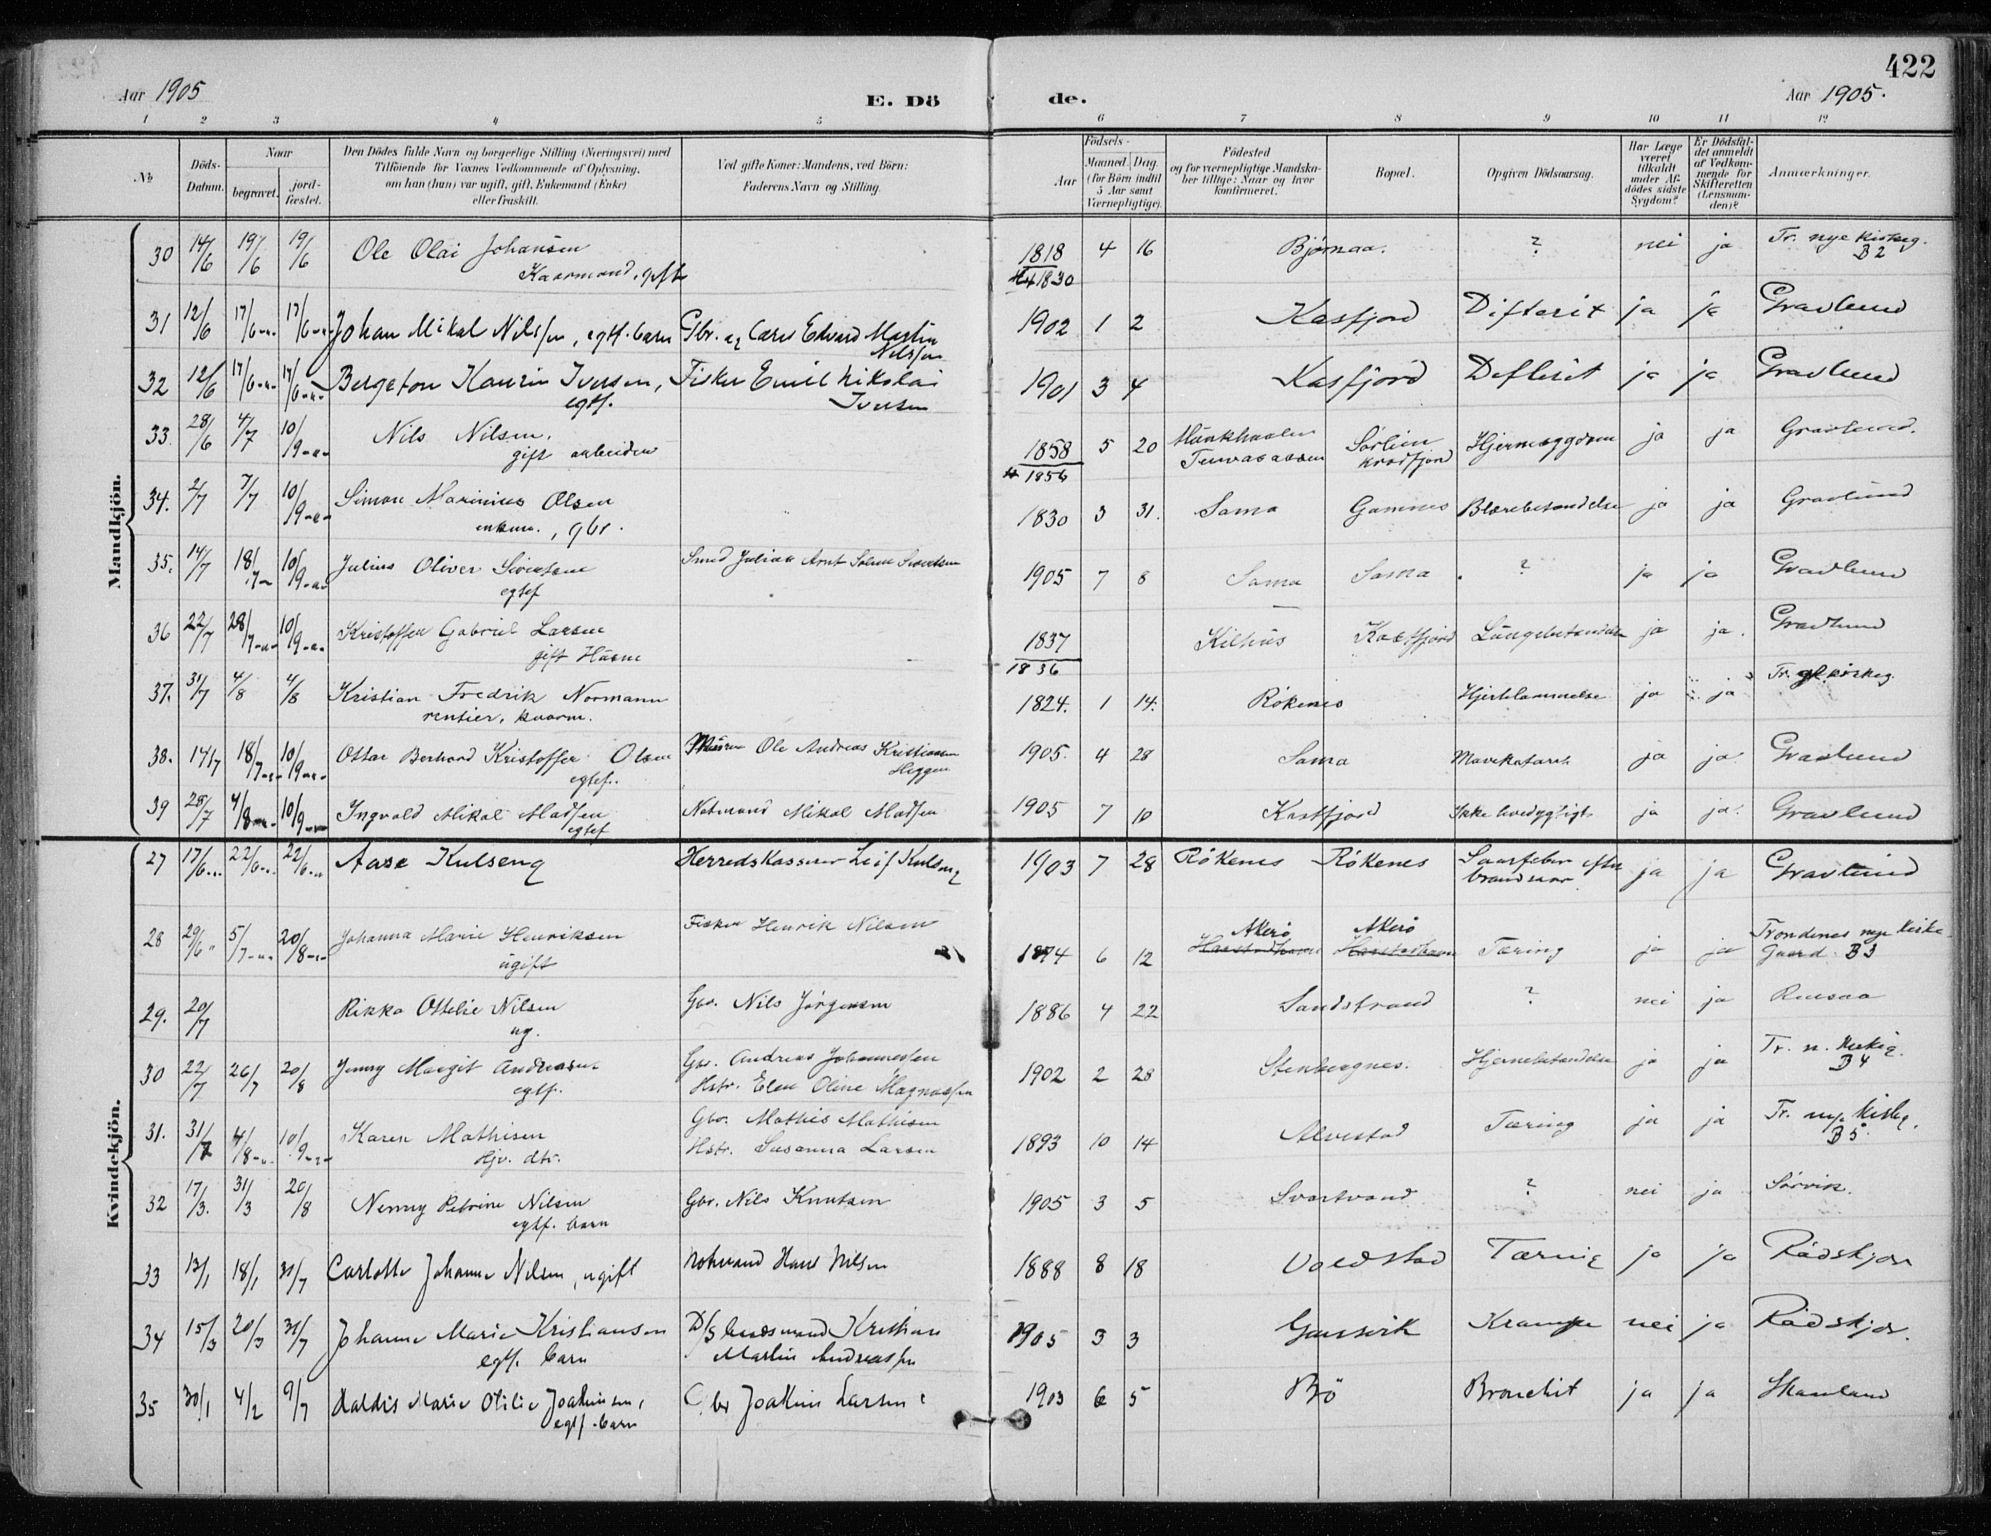 422
Aar 1905
E. Dö de.
Aar 1905.
1 2 3 4 5 6 7 8 9 10 11 12
No
Döds-Datum.
Naar
begravet.
jord-fæstet.
Den Dödes fulde Navn og borgerlige Stilling (Næringsvei) med
Tilföiende for Voxnes Vedkommende af Oplysning,
om han (hun) var ugift, gift, Enkemand (Enke)
eller fraskilt.
Ved gifte Koner: Mandens, ved Börn:
Faderens Navn og Stilling.
Födsels-
Aar
Maaned. Dag.
(for Börn indtil
5 Aar samt
Værnepligtige).
Födested
og for værnepligtige Mandska-
ber tillige: Naar og hvor
konfirmeret.
Bopæl.
Opgiven Dödsaarsag.
Har Læge
været
tilkaldt
under Af-
dödes sidste
Sygdom?
Er Dödsfal-
det anmeldt
af Vedkom-
mende for
Skifteretten
(Lensman-
den)?
Anmærkninger.
Mandkjön.
30 14/6 19/6 19/6 Ole Olai Johansen 1818 4 16 Bjørnaa. ? nei ja Tr. nye kirkeg.
gift 1830 B 2
31 12/6 17/6 17/6 Johan Mikal Nilssen, egtf. barn Gbr. Edvard Martin 1902 1 2 Kasfjord Difterit ja ja Gravlund
Nilssen
32 12/6 17/6 17/6 Bergeton Kaurin Iversen, Fisker Emil Nikolai 1901 3 4 Kasfjord ja ja Gravlund
egtf. Iversen
33. 28/6 4/7 10/9 Nils Nilsen, 1858 5 20 Sørlien Hjernesygdom ja ja Gravlund.
gift arbeider 1856
34. 2/7 7/7 10/9 Simon Marinius Olsen 1830 3 31. Sama Gamnes Blærebetændelse ja ja Gravlund
enkem., gbr.
35. 14/7 18/7 10/9 Julius Oliver Sivertsen Smed Sivertsen 1905 7 8 Sama Sama ? ja ja Gravlund
egtef
36 22/7 28/7 10/9 Kristoffer Gabriel Larsen 1837 Kilhus Kasfjord Lungebetændelse ja ja. Gravlund
gift 1836
37. 31/7 4/8 4/8 Kristian Fredrik Normann 1824. 1 14. Røkenes Hjertelammelse ja ja Tr. gl. kirkeg.
rentier,
38. 14/7 18/7 10/9 Ottar Berhard Kristoffer Olsen Murer Ole Andreas Kristiansen 1905. 4 28 Sama Mavekatarrh ja ja. Gravlund
egtef. Heggen
39 28/7 4/8 10/9 Ingvald Mikal Madsen Notmand Mikal Madsen 1905 7 10 Kasfjord Ikke ja ja. Gravlund
egtef
Kvindekjön.
27 17/6 22/6 22/6 Aase Kulseng Herredskasserer Leif Kulseng 1903 7 28 Røkenes Røkenes Saarfeber efter ja ja Gravlund
brandsaar
28 29/6 5/7 20/8 Johanna Marie Henriksen Fisker Henrik Nilsen 1874 6 12 Akerö Akerö Tæring ja ja Trondenes nye kirke-
ugift Harstadhavn Harstadhavn Gaard B 3
29. 20/7 Rikka Ottelie Nilsen Gbr. Nils Jørgensen 1886 4 22 Sandstrand ? nei ja
ug.
30 22/7 26/7 20/8 Jenny Margit Andreasen Gbr. Andreas Johannessen 1902 2 28 Stenbergnes. Hjernebetændelse ja ja Tr. n. kirkeg.
egtf. Hstr. Elen Oline Magnussen B 4
31. 31/7 4/8 10/9 Karen Mathisen Gbr. Mathis Mathisen 1893 10 14 Alvestad Tæring ja ja Tr. nye kirkeg.
Hjv. dtr. Hstr. Susanna Larsen B 5.
32 17/3. 31/3 20/8 Nenny Petrine Nilsen Gbr. Nils Knutsen 1905 3 5 Svartvand ? nei ja Sørvik.
egtf. barn
33 13/1 18/1 31/7 Carlotte Johanne Nilsen, ugift Notmand Hans Nilsen 1888 8 18 Voldstad Tæring ja ja Rødskjær
34 15/3 20/3 31/7 Johanne Marie Kristiansen D/S Kristian 1905 3 3 Gausvik Krampe nei ja Rødskjær.
egtf. barn Martin Andreassen
35 30/1 4/2 9/7 Haldis Marie Otilie Joakimsen, Gbr Joakim Larsen 1903 6 5 Bö Bronchit ja ja Skanland
egtf. barn